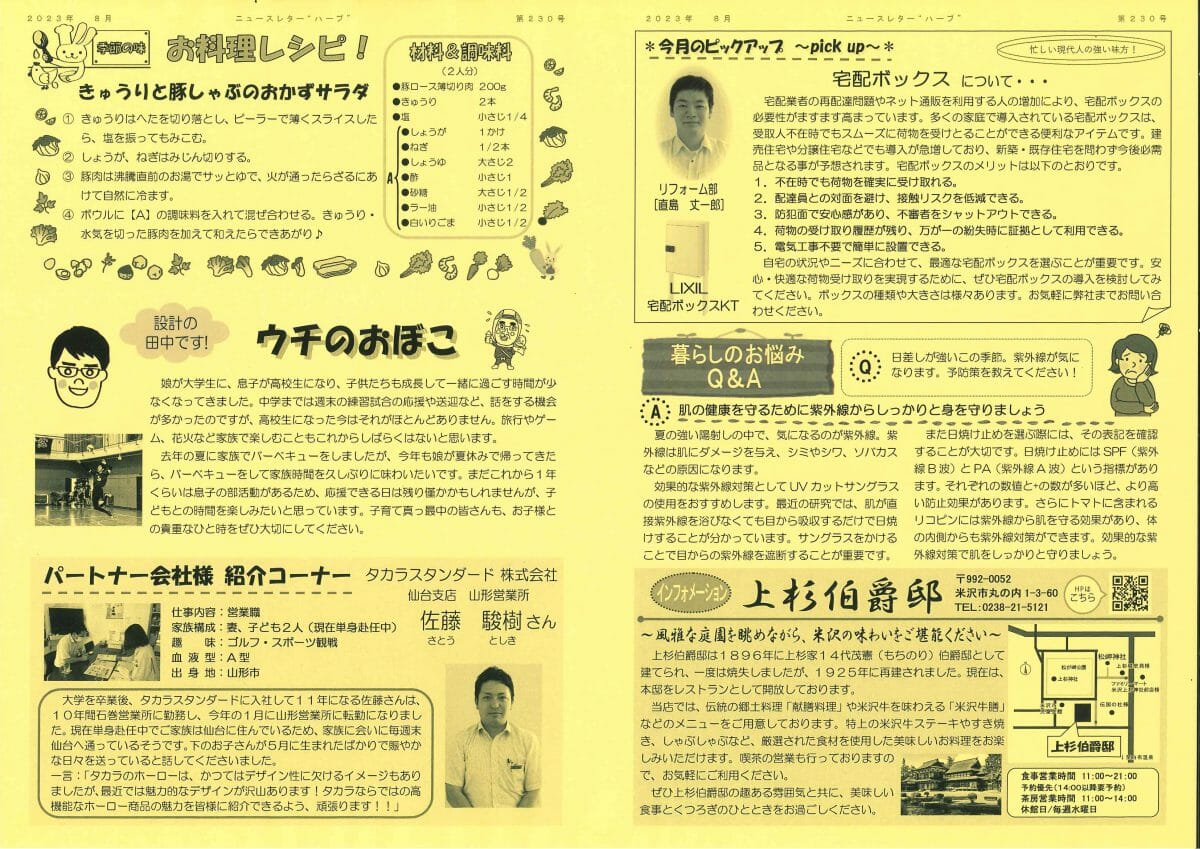 2023年　8月
ニュースレター“ハーブ”
第230号
季節の味
お料理レシピ！
きゅうりと豚しゃぶのおかずサラダ
① きゅうりはへたを切り落とし、ピーラーで薄くスライスした
ら、塩を振ってもみこむ。
② しょうが、ねぎはみじん切りする。
③ 豚肉は沸騰直前のお湯でサッとゆで、火が通ったらざるにあ
けて自然に冷ます。
④ ボウルに【A】の調味料を入れて混ぜ合わせる。きゅうり・
水気を切った豚肉を加えて和えたらできあがり♪
材料＆調味料
（２人分）
●豚ロース薄切り肉 200g
●きゅうり 2本
●塩 小さじ1/4
A
●しょうが 1かけ
●ねぎ 1/2本
●しょうゆ 大さじ2
●酢 小さじ1
●砂糖 大さじ1/2
●ラー油 小さじ1/2
●白いりごま 小さじ1/2
設計の
田中です!
ウチのおぼこ
娘が大学生に、息子が高校生になり、子供たちも成長して一緒に過ごす時間が少
なくなってきました。中学までは週末の練習試合の応援や送迎など、話をする機会
が多かったのですが、高校生になった今はそれがほとんどありません。旅行やゲー
ム、花火など家族で楽しむこともこれからしばらくはないと思います。
去年の夏に家族でバーベキューをしましたが、今年も娘が夏休みで帰ってきた
ら、バーベキューをして家族時間を久しぶりに味わいたいです。まだこれから１年
くらいは息子の部活動があるため、応援できる日は残り僅かかもしれませんが、子
どもとの時間を楽しみたいと思っています。子育て真っ最中の皆さんも、お子様と
の貴重なひと時をぜひ大切にしてください。
パートナー会社様 紹介コーナー
タカラスタンダード 株式会社
仙台支店　山形営業所
佐藤　駿樹さん
さとう　としき
仕事内容：営業職
家族構成：妻、子ども２人（現在単身赴任中）
趣　　味：ゴルフ・スポーツ観戦
血 液 型：Ａ型
出 身 地：山形市
大学を卒業後、タカラスタンダードに入社して１１年になる佐藤さんは、
１０年間石巻営業所に勤務し、今年の１月に山形営業所に転勤になりまし
た。現在単身赴任中でご家族は仙台に住んでいるため、家族に会いに毎週末
仙台へ通っているそうです。下のお子さんが５月に生まれたばかりで賑やか
な日々を送っていると話してくださいました。
一言：「タカラのホーローは、かつてはデザイン性に欠けるイメージもあり
ましたが、最近では魅力的なデザインが沢山あります！タカラならではの高
機能なホーロー商品の魅力を皆様に紹介できるよう、頑張ります！！」
2023年　8月
ニュースレター“ハーブ”
第230号
＊今月のピックアップ ～pick up～＊
忙しい現代人の強い味方！
宅配ボックス について・・・
リフォーム部
[直島　丈一郎]
LIXIL
宅配ボックスKT
宅配業者の再配達問題やネット通販を利用する人の増加により、宅配ボックスの
必要性がますます高まっています。多くの家庭で導入されている宅配ボックスは、
受取人不在時でもスムーズに荷物を受けとることができる便利なアイテムです。建
売住宅や分譲住宅などでも導入が急増しており、新築・既存住宅を問わず今後必需
品となる事が予想されます。宅配ボックスのメリットは以下のとおりです。
１．不在時でも荷物を確実に受け取れる。
２．配達員との対面を避け、接触リスクを低減できる。
３．防犯面で安心感があり、不審者をシャットアウトできる。
４．荷物の受け取り履歴が残り、万が一の紛失時に証拠として利用できる。
５．電気工事不要で簡単に設置できる。
自宅の状況やニーズに合わせて、最適な宅配ボックスを選ぶことが重要です。安
心・快適な荷物受け取りを実現するために、ぜひ宅配ボックスの導入を検討してみ
てください。ボックスの種類や大きさは様々あります。お気軽に弊社までお問い合
わせください。
暮らしのお悩み
Q＆A
Q
日差しが強いこの季節。紫外線が気に
なります。予防策を教えてください！
A
肌の健康を守るために紫外線からしっかりと身を守りましょう
夏の強い陽射しの中で、気になるのが紫外線。紫
外線は肌にダメージを与え、シミやシワ、ソバカス
などの原因になります。
効果的な紫外線対策としてＵＶカットサングラス
の使用をおすすめします。最近の研究では、肌が直
接紫外線を浴びなくても目から吸収するだけで日焼
けすることが分かっています。サングラスをかける
ことで目からの紫外線を遮断することが重要です。
また日焼け止めを選ぶ際には、その表記を確認
することが大切です。日焼け止めにはＳＰＦ（紫外
線Ｂ波）とＰＡ（紫外線Ａ波）という指標があり
ます。それぞれの数値と+の数が多いほど、より高
い防止効果があります。さらにトマトに含まれる
リコピンには紫外線から肌を守る効果があり、体
の内側からも紫外線対策ができます。効果的な紫
外線対策で肌をしっかりと守りましょう。
インフォメーション
上杉伯爵邸
〒992-0052
米沢市丸の内 1-3-60
TEL:0238-21-5121
HPは
こちら
～風雅な庭園を眺めながら、米沢の味わいをご堪能ください～
上杉伯爵邸は１８９６年に上杉家１４代茂憲（もちのり）伯爵邸として
建てられ、一度は焼失しましたが、１９２５年に再建されました。現在は、
本邸をレストランとして開放しております。
当店では、伝統の郷土料理「献膳料理」や米沢牛を味わえる「米沢牛膳」
などのメニューをご用意しております。特上の米沢牛ステーキやすき焼
き、しゃぶしゃぶなど、厳選された食材を使用した美味しいお料理をお楽
しみいただけます。喫茶の営業も行っておりますの
で、お気軽にご利用ください。
ぜひ上杉伯爵邸の趣ある雰囲気と共に、美味しい
食事とくつろぎのひとときをお過ごしください。
松が岬公園
松岬神社
上杉神社
伝国の杜様
上杉伯爵邸
食事営業時間 11:00～21:00
予約優先(14:00以降要予約)
茶房営業時間 11:00～14:00
休館日/毎週水曜日